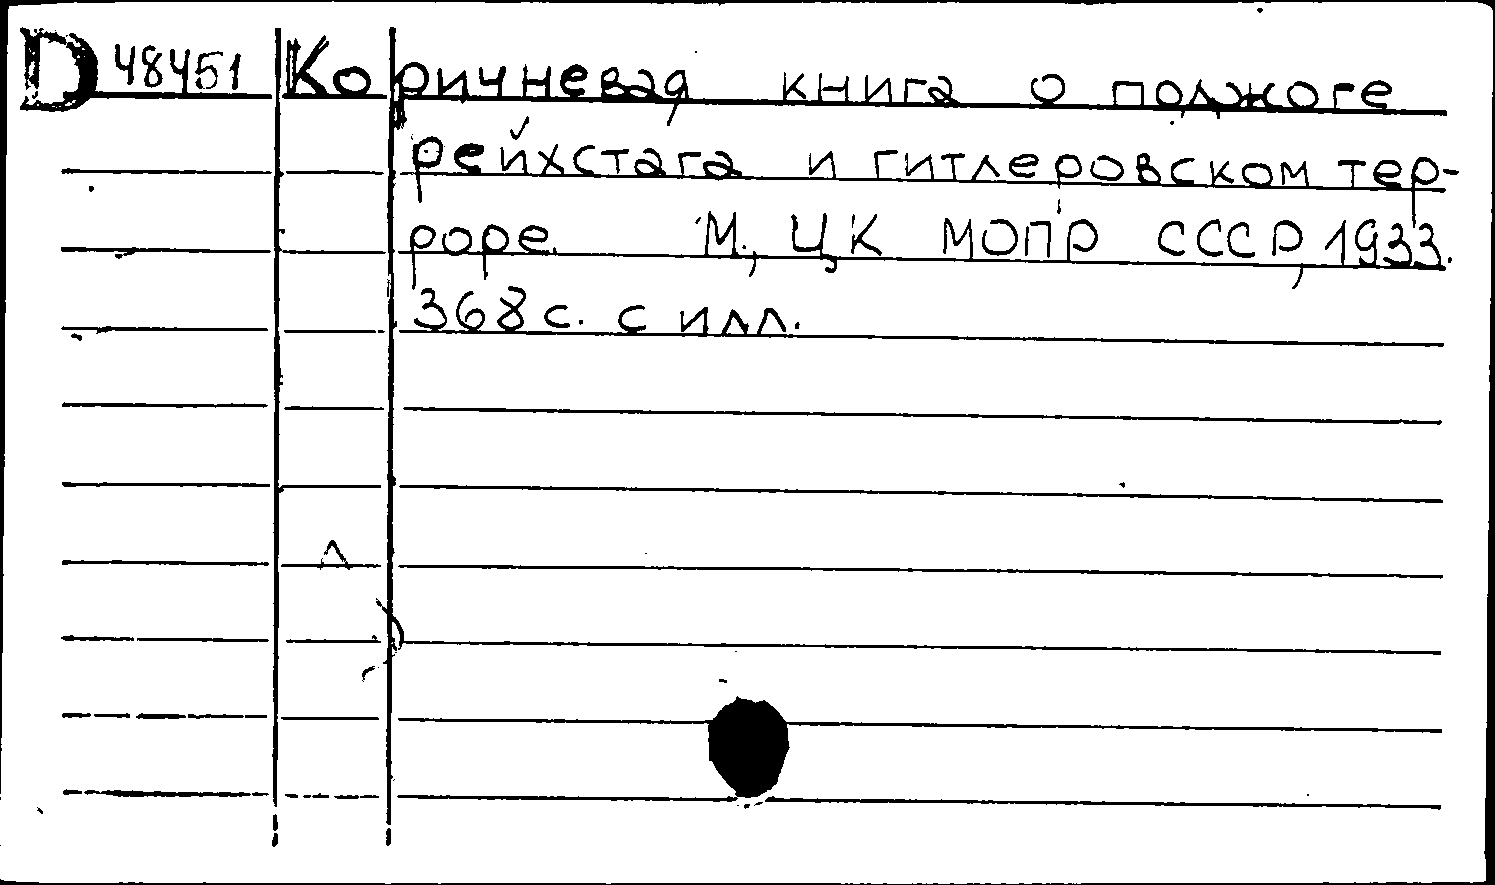 D 48451 Коричневая книга о поджоге
рейхстага и гитлеровском тер-
роре. М., ЦК МОПР СССР, 1933.
368 с. с илл.